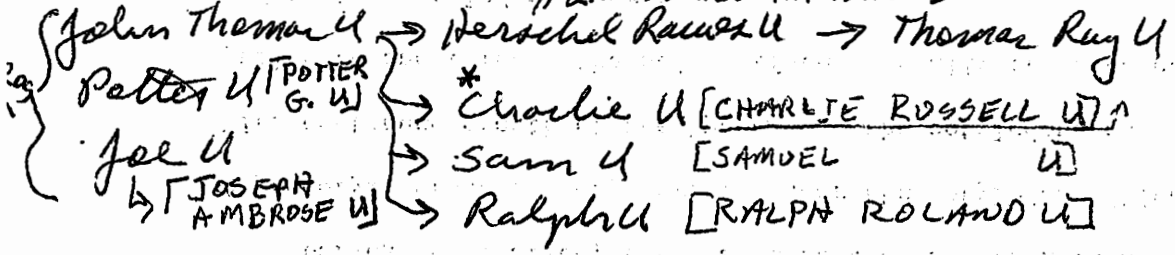 John Thomas U → Herschel Raines U → Thomas Ray U
Potter U [POTTER G. U] → * Charlie U [CHARLIE RUSSELL U]
Joe U → Sam U [SAMUEL U]
↳ [JOSEPH AMBROSE U] → Ralph U [RALPH ROLAND U]